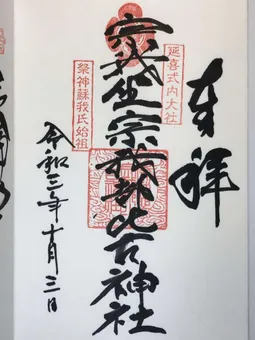 奉拝
延喜式内大社
宗我坐宗我都比古神社
祭神蘇我氏始祖
令和三年十月三日